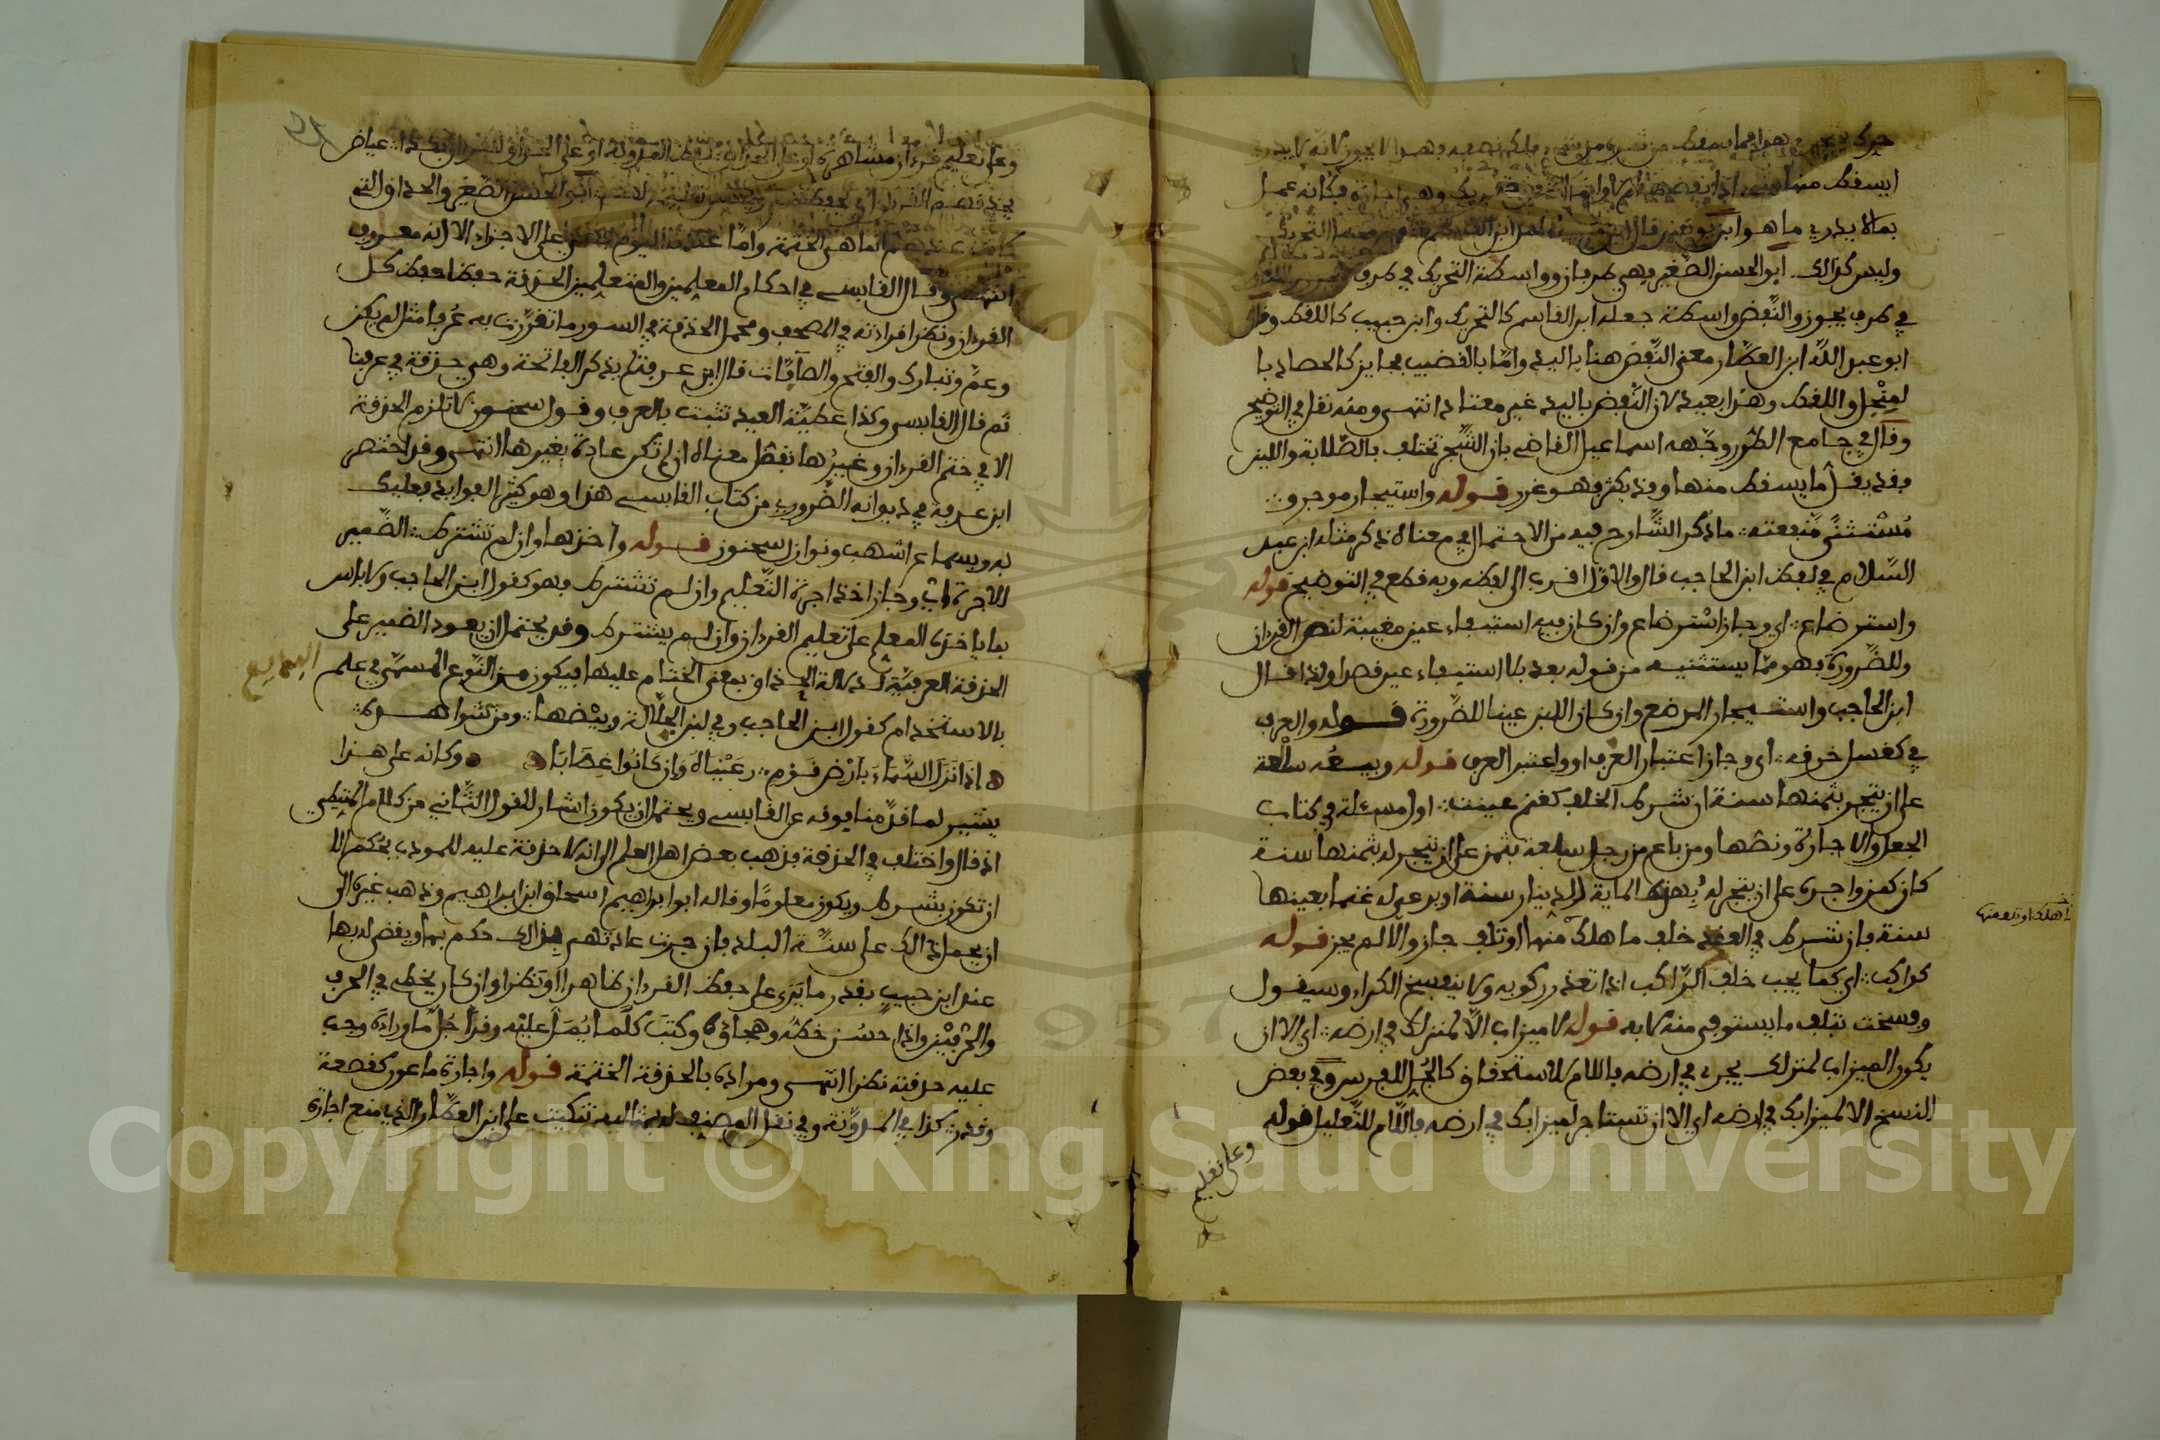 ايسقط منها شيء
بما لا يدري ما هو ابن يونس قال
وليس كذلك. ابو الحسن الصغير وهي طرفان وواسطة التحريك في طرف
في طرف يجوز والنفض واسطة جعله ابن القاسم كالتحريك وابن حبيب كاللقط وقال
ابو عبد الله ابن العطار معنى النفض هنا باليد واما بالقضيب فجايز كالحصاد با
لمنجل واللقط وهذا بعيد لان النفض باليد غير معتاد انتهى ومنه نقل في التوضيح
وقال في جامع الطرر وجهه اسماعيل القاضي بان الشجر تختلف بالصلابة واللين
وقد يقل ما يسقط منها وقد يكثر وهو غرر قوله واستيجار موجر و
مستثنى منفعته ما ذكر الشارح فيه من الاحتمال في معناه ذكر مثله ابن عبد
السلام في لفظ ابن الحاجب قال والاول اقرب الى لفظه وبه قطع في التوضيح قوله
واسترضاع اي وجاز استرضاع وان كان فيه استيفاء عين مغيبة لنص القرءان
وللضرورة فهو مما يستثنيه من قوله بعد بلا استيفاء عين قصدا ولذا قال
ابن الحاجب واستيجار المرضع وان كان اللبن عينا للضرورة قوله والعرف
في كغسل خرقه اي وجاز اعتبار العرف او واعتبر العرف قوله وبيعه سلعة
على ان يتجر بثمنها سنة ان شرط الخلف كغنم عينت اول مسئلة في كتاب
الجعل والاجارة ونصها ومن باع من رجل سلعة بثمن على ان يتجر له بثمنها سنة
كان كمن واجره على ان يتجر له بهذه الماية دينار سنة او يرعى له غنما بعينها
سنة فان شرط في العقد خلف ما هلك منها او تلف جاز والا لم يجز قوله
كراكب اي كما يجب خلف الراكب اذا تعذر ركوبه ولا ينفسخ الكراء وسيقول
وفسخت بتلف ما يستوفى منه لا به قوله لا ميزاب الا لمنزلك في ارضه اي الا ان
يكون الميزاب لمنزلك يجري في ارضه باللام للاستحقاق كالجل للفرس وفي بعض
النسخ الا لميزابك في ارضه اي الا ان تستاجر لميزابك في ارضه فاللام للتعليل قوله
وعلى تعليم
وعلى تعليم قرءان مشاهرة او على الحذاق
كانت عندهم انما هي الختمة واما عندنا اليوم على الاجزاء الا انه معروف
انتهى وقال القابسي في احكام المعلمين والمتعلمين الحذقة حفظا حفظ كل
القرءان ونظرا قراءته في المصحف ومحمل الحذقة في السور ما تقررت به عرفا مثل لم يكن
وعم وتبارك والفتح والصافات قال ابن عرفة لم يذكر الفاتحة وهي حذقة في عرفنا
ثم قال القابسي وكذا عطية العيد تثبت بالعرف وقول سحنون لا تلزم الحذقة
الا في ختم القرءان وغيرها تفضل معناه ان لم تكن عادة بغيرها انتهى وقد اختصر
ابن عرفة في ديوانه الضروري من كتاب القابسي هذا وهو كثير الفوايد فعليك
به وبسماع اشهب ونوازل سحنون قوله واخذها وان لم تشترط الضمير
للاجرة اي وجاز اخذ اجرة التعليم وان لم تشترط فهو كقول ابن الحاجب ولا باس
بما ياخذه المعلم على تعليم القرءان وان لم يشترط وقد يحتمل ان يعود الضمير على
الحذقة العرفية لدلالة الحذاق بمعنى الختام عليها فيكون من النوع المسمى في علم
البديع
بالاستخدام كقول ابن الحاجب وفي لبن الجلالة وبيضها ومن شواهده
اذا نزل السماء بارض قوم رعيناه وان كانوا غضابا وكانه على هذا
يشير لما قدمنا فوقه عن القابسي ويحتمل ان يكون اشار للقول الثاني من كلام المتيطي
اذ قال واختلف في الحذقة فذهب بعض اهل العلم الى انه لا حذقة عليه للمودب بحكم الا
ان تكون بشرط ويكون معلوما وقاله ابو ابراهيم اسحاق ابن ابراهيم وذهب غيره الى
ان يحمل ذلك على سنة البلد فان جرت عادتهم بذلك حكم بها ويقضى له بها
عند ابن حبيب بقدر ما يرى على حفظ القرءان ظاهرا او نظرا وان كان يخطي في الحرف
والحرفين واذا حسن خطه وهجاؤه وكتب كلما يمل عليه وقرأ جل ما وراءه وجب
عليه حذقته نظرا انتهى ومراده بالحذقة الختمة قوله واجارة ماعون كقصعة
وقدر كذا في المدونة وفي نقل المصنف له بمثاليه تنكيت على ابن العطار الذي منع اجارة